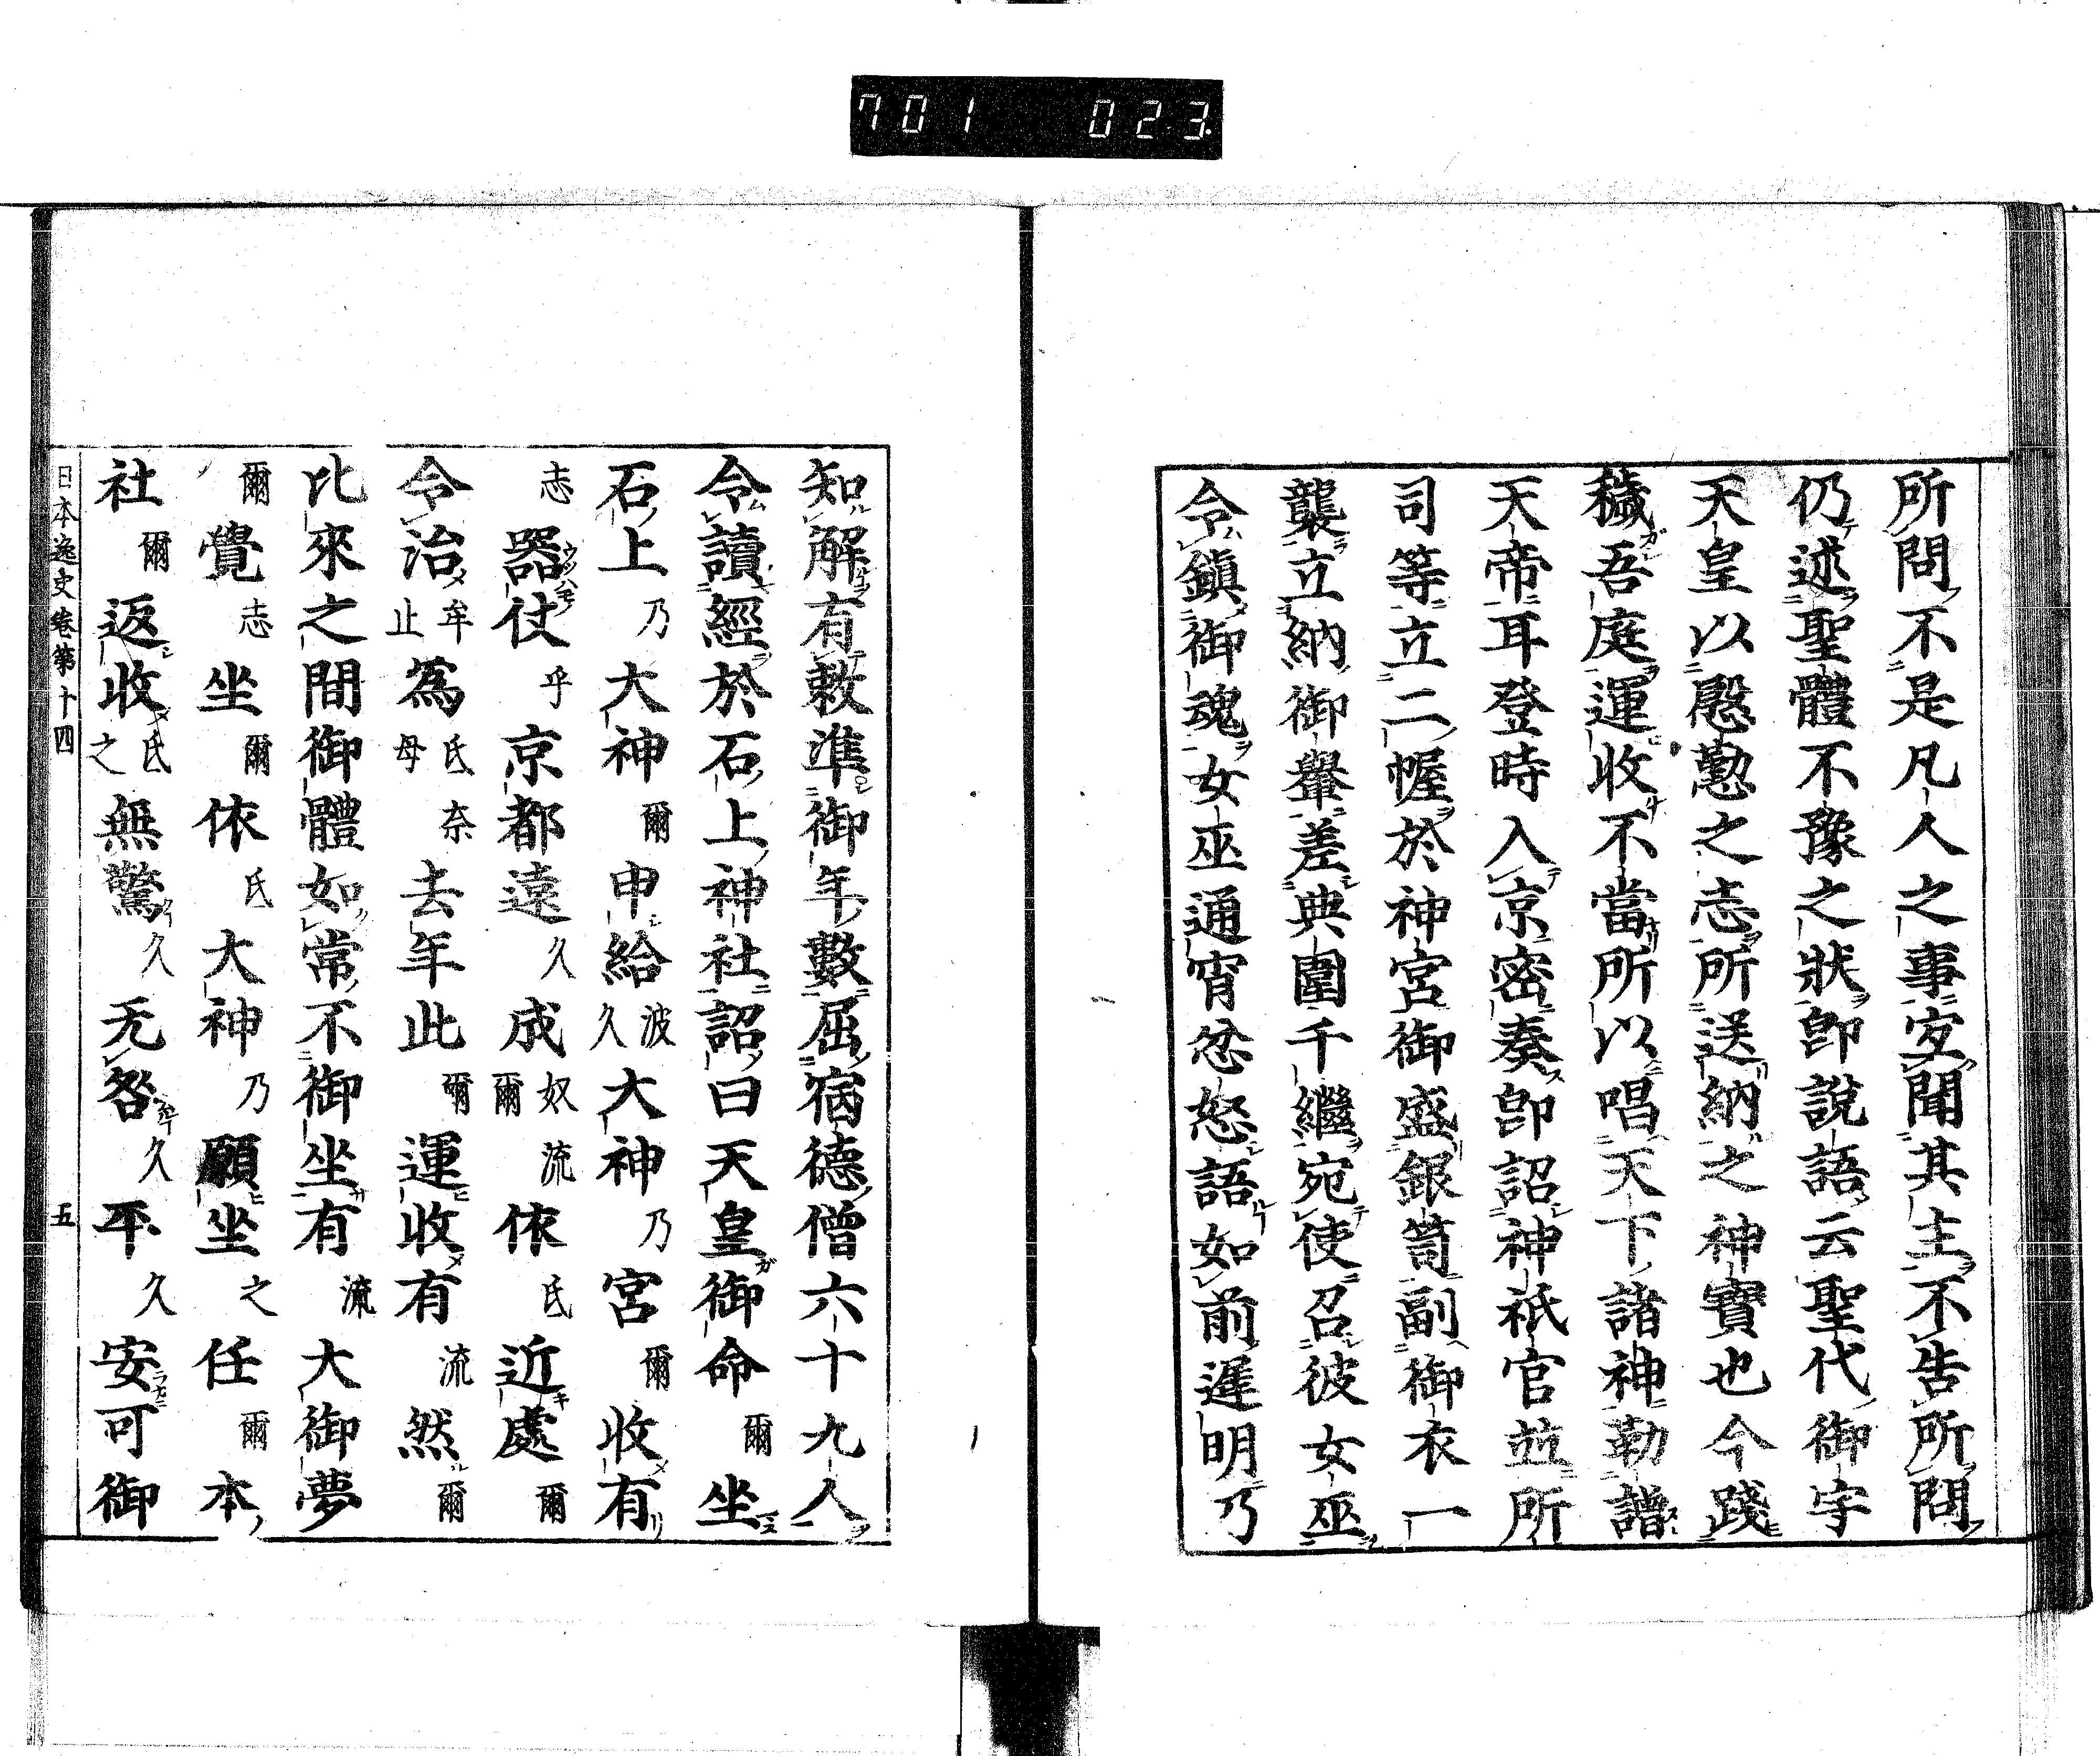 701 023
所問不是凡人之事宜聞其主不告所問
仍述聖體不豫之狀卽說語云聖代御宇
天皇以慇懃之志所送納之神寶也今踐
穢吾庭運收不當所以唱天下諸神勒譜
天帝耳登時入京密奏卽詔神祇官並所
司等立二幄於神宮御盛銀笥副御衣一
襲立納御轝差典闈千繼宛使召彼女巫
令鎭御魂女巫通宵忿怒語如前遲明乃
知解有敕準御年數屈宿德僧六十九人
令讀經於石上神社詔曰天皇御命爾坐
石上乃大神爾申給波久大神乃宮爾收有
志器仗乎京都遠久成奴流爾依氐近處爾
令治牟止爲氐奈母去年此爾運收有流然爾
比來之間御體如常不御坐有流大御夢
爾覺志坐爾依氐大神乃願坐之任爾本
社爾返收氐之無驚久无咎久平久安可御
日本逸史卷第十四 五